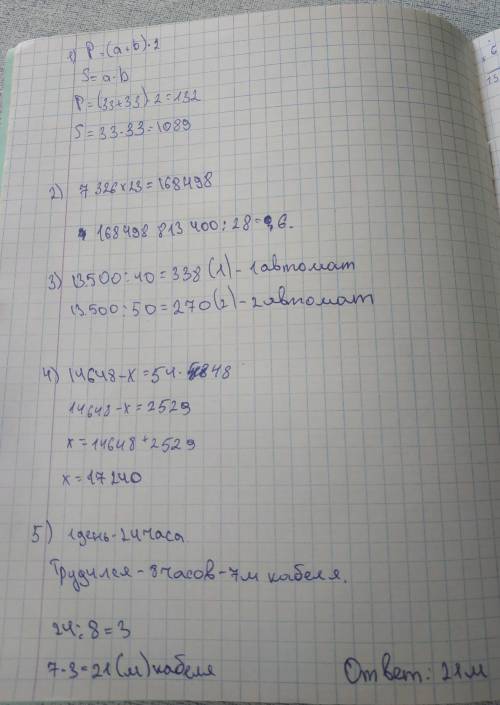 1) P=(a+b)·2
S=a·b
P=(33+33)·2=132
S=33·33=1089
2) 7 326×23=168498
168498 813 400:28=6.
3) 13.500:40=338(1)-1автомат
13.500:50=270(2)-2автомат
4) 14648-x=54·48
14648-x=2529
x=14648+2529
x=17240
5) 1день-24часа
Трудился-8часов-7м кабеля.
24:8=3
7·3=21(м)кабеля
Ответ: 21м